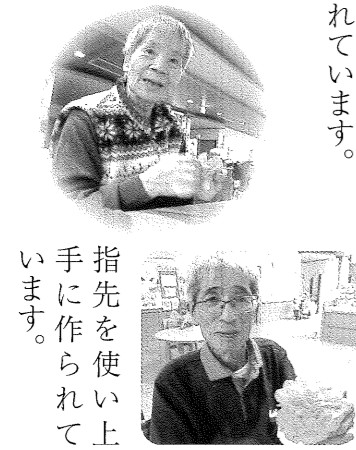 れています。
指先を使い上
手に作られて
います。